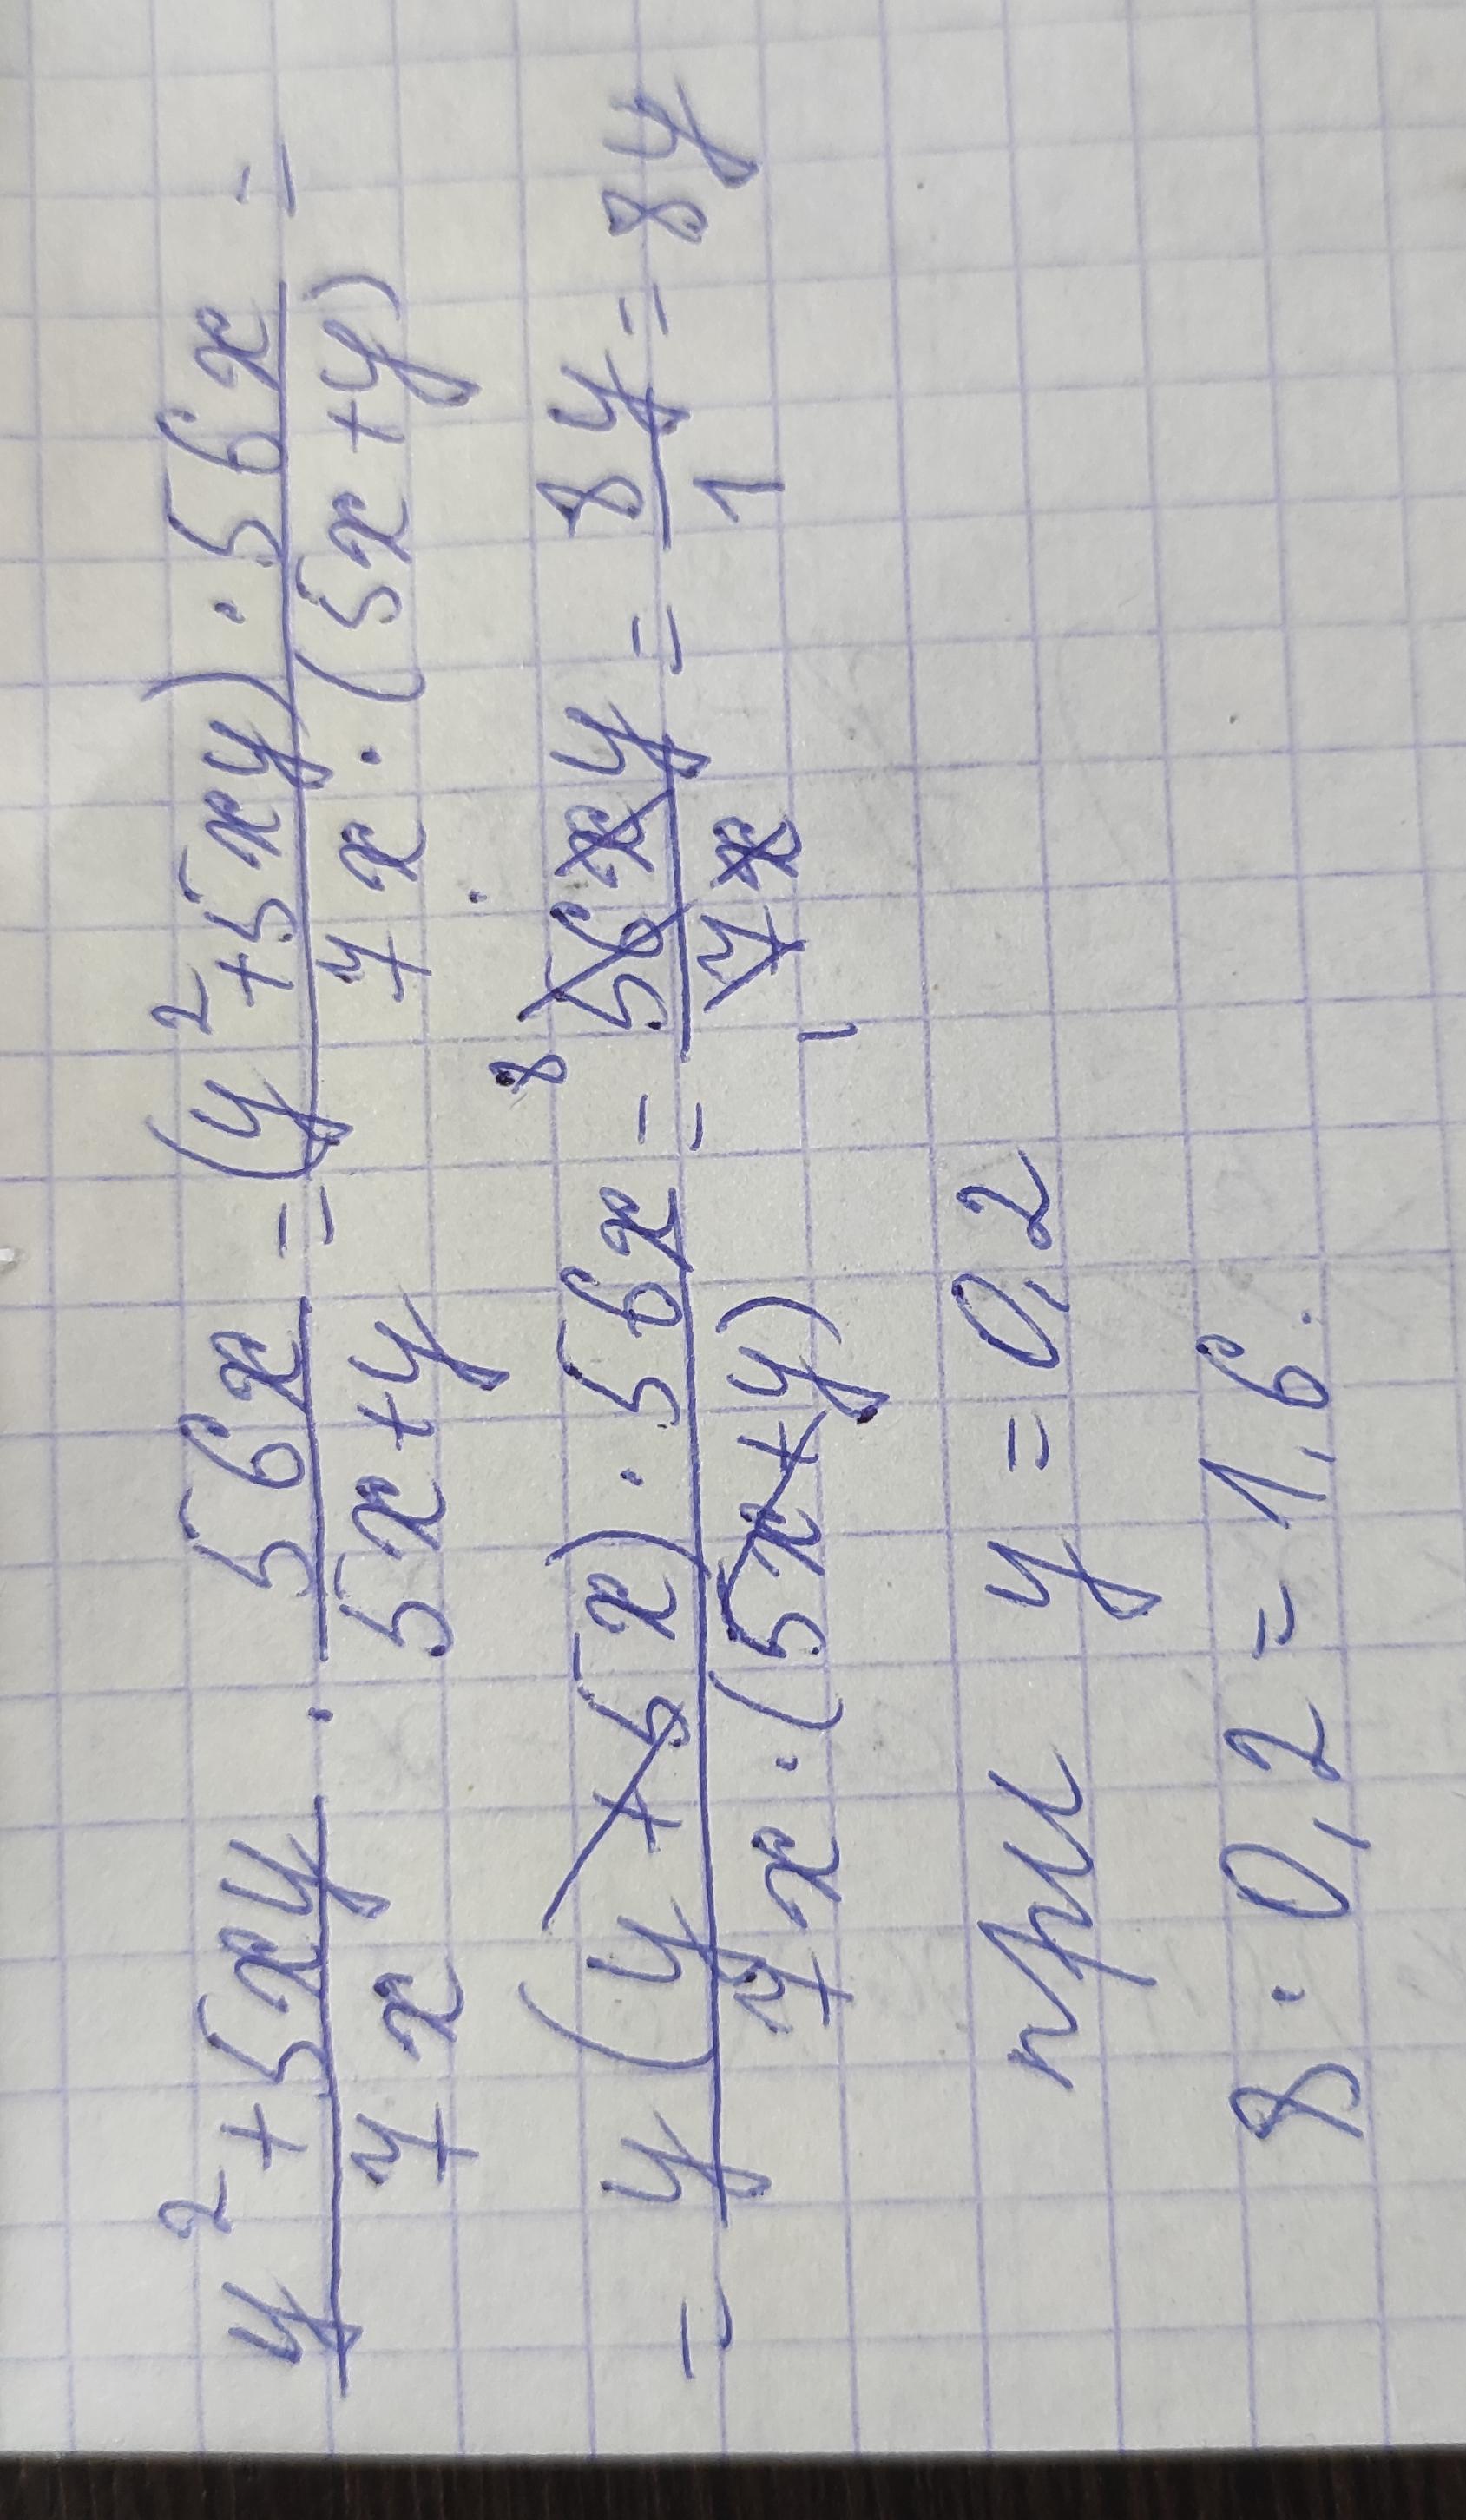 y²+5xy/7x · 56x/5x+y = (y²+5xy)·56x/7x·(5x+y) =
= y(y+5x)·56x/7x·(5x+y) = 8 56xy/7x 1 = 8y/1 = 8y
при y = 0,2
8·0,2 = 1,6.